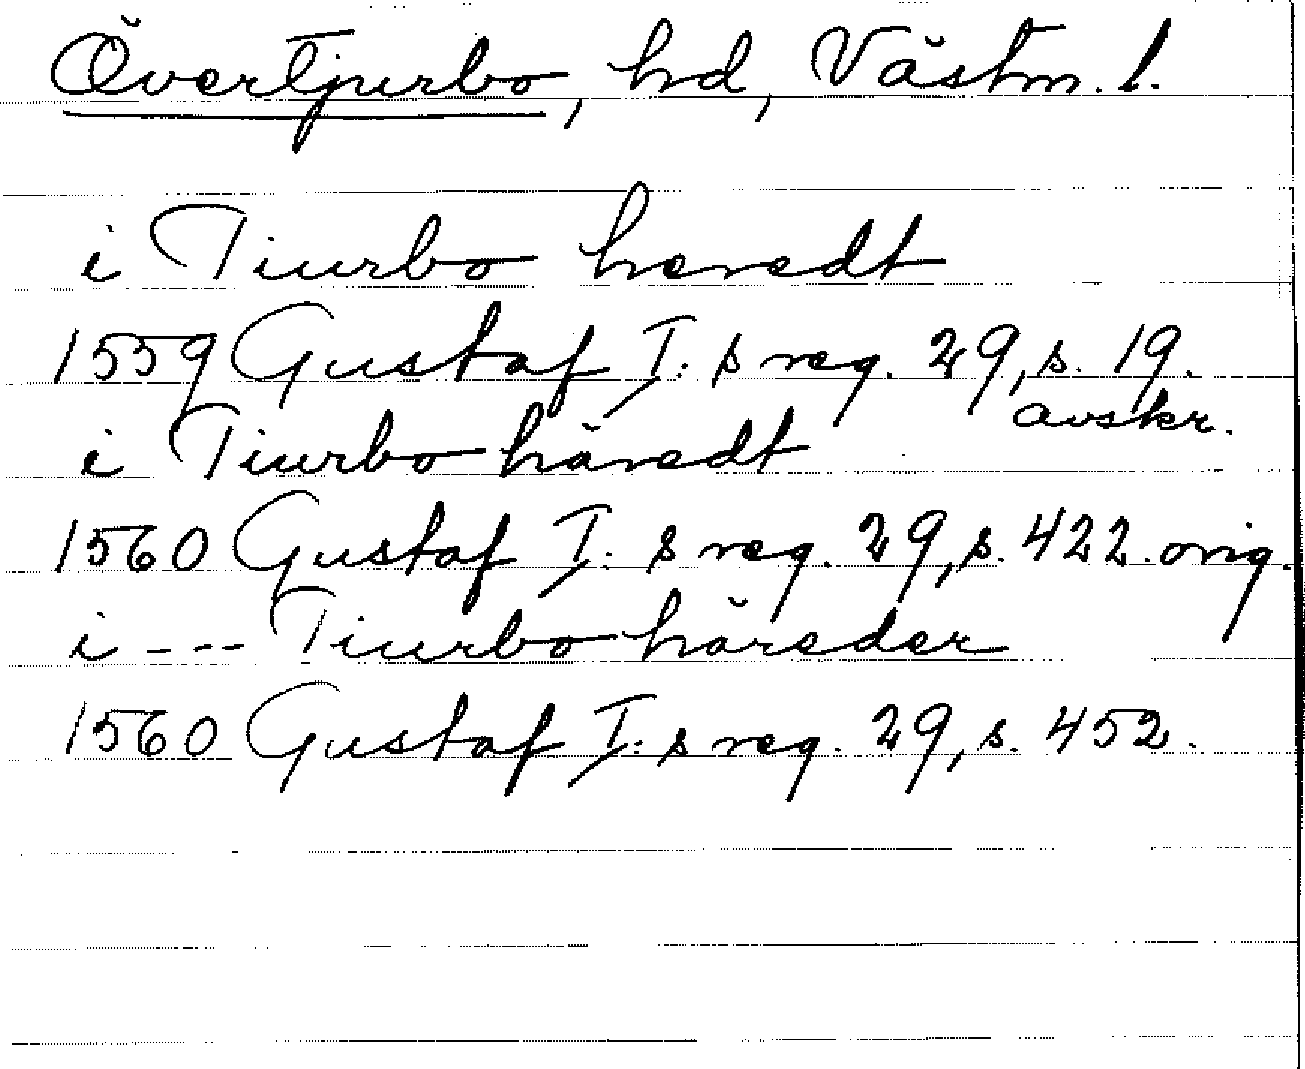 Övertjurbo, hd, Västm. l.
i Tiurbo heredt
1559 Gustaf I: s reg. 29, s. 19.
avskr.
i Tiurbo häredt
1560 Gustaf I: s reg. 29, s. 422. orig.
i --- Tiurbo häreder
1560 Gustaf I: s reg. 29, s. 452.